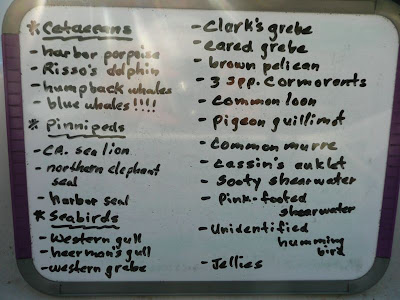 * Cetaceans
- harbor porpoise
- Risso's dolphin
- humpback whales
- blue whales!!!!
* Pinnipeds
- CA. sea lion
- northern elephant
seal
- harbor seal
* Seabirds
- Western gull
- heerman's gull
- western grebe
- Clark's grebe
- eared grebe
- brown pelican
- 3 spp. Cormorants
- Common loon
- pigeon guillimot
- Common murre
- Cassin's auklet
- Sooty shearwater
- Pink-footed
shearwater
- Unidentified
humming
bird
- Jellies